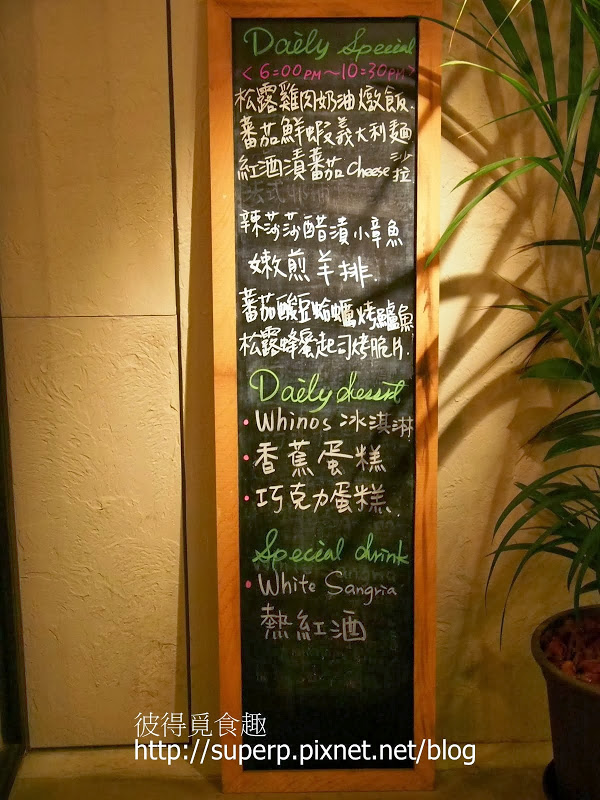 Daily Special
< 6:00 PM ~ 10:30 PM >
松露雞肉奶油燉飯.
蕃茄鮮蝦義大利麵
紅酒漬蕃茄cheese沙拉
辣莎莎醋漬小章魚
嫩煎羊排.
蕃茄酸豆蛤蠣烤鱸魚
松露蜂蜜起司烤脆片.
Daily dessrt
• Whinos 冰淇淋
• 香蕉蛋糕
• 巧克力蛋糕.
Special drink
• White Sangria
熱紅酒
彼得覓食趣
http://superp.pixnet.net/blog